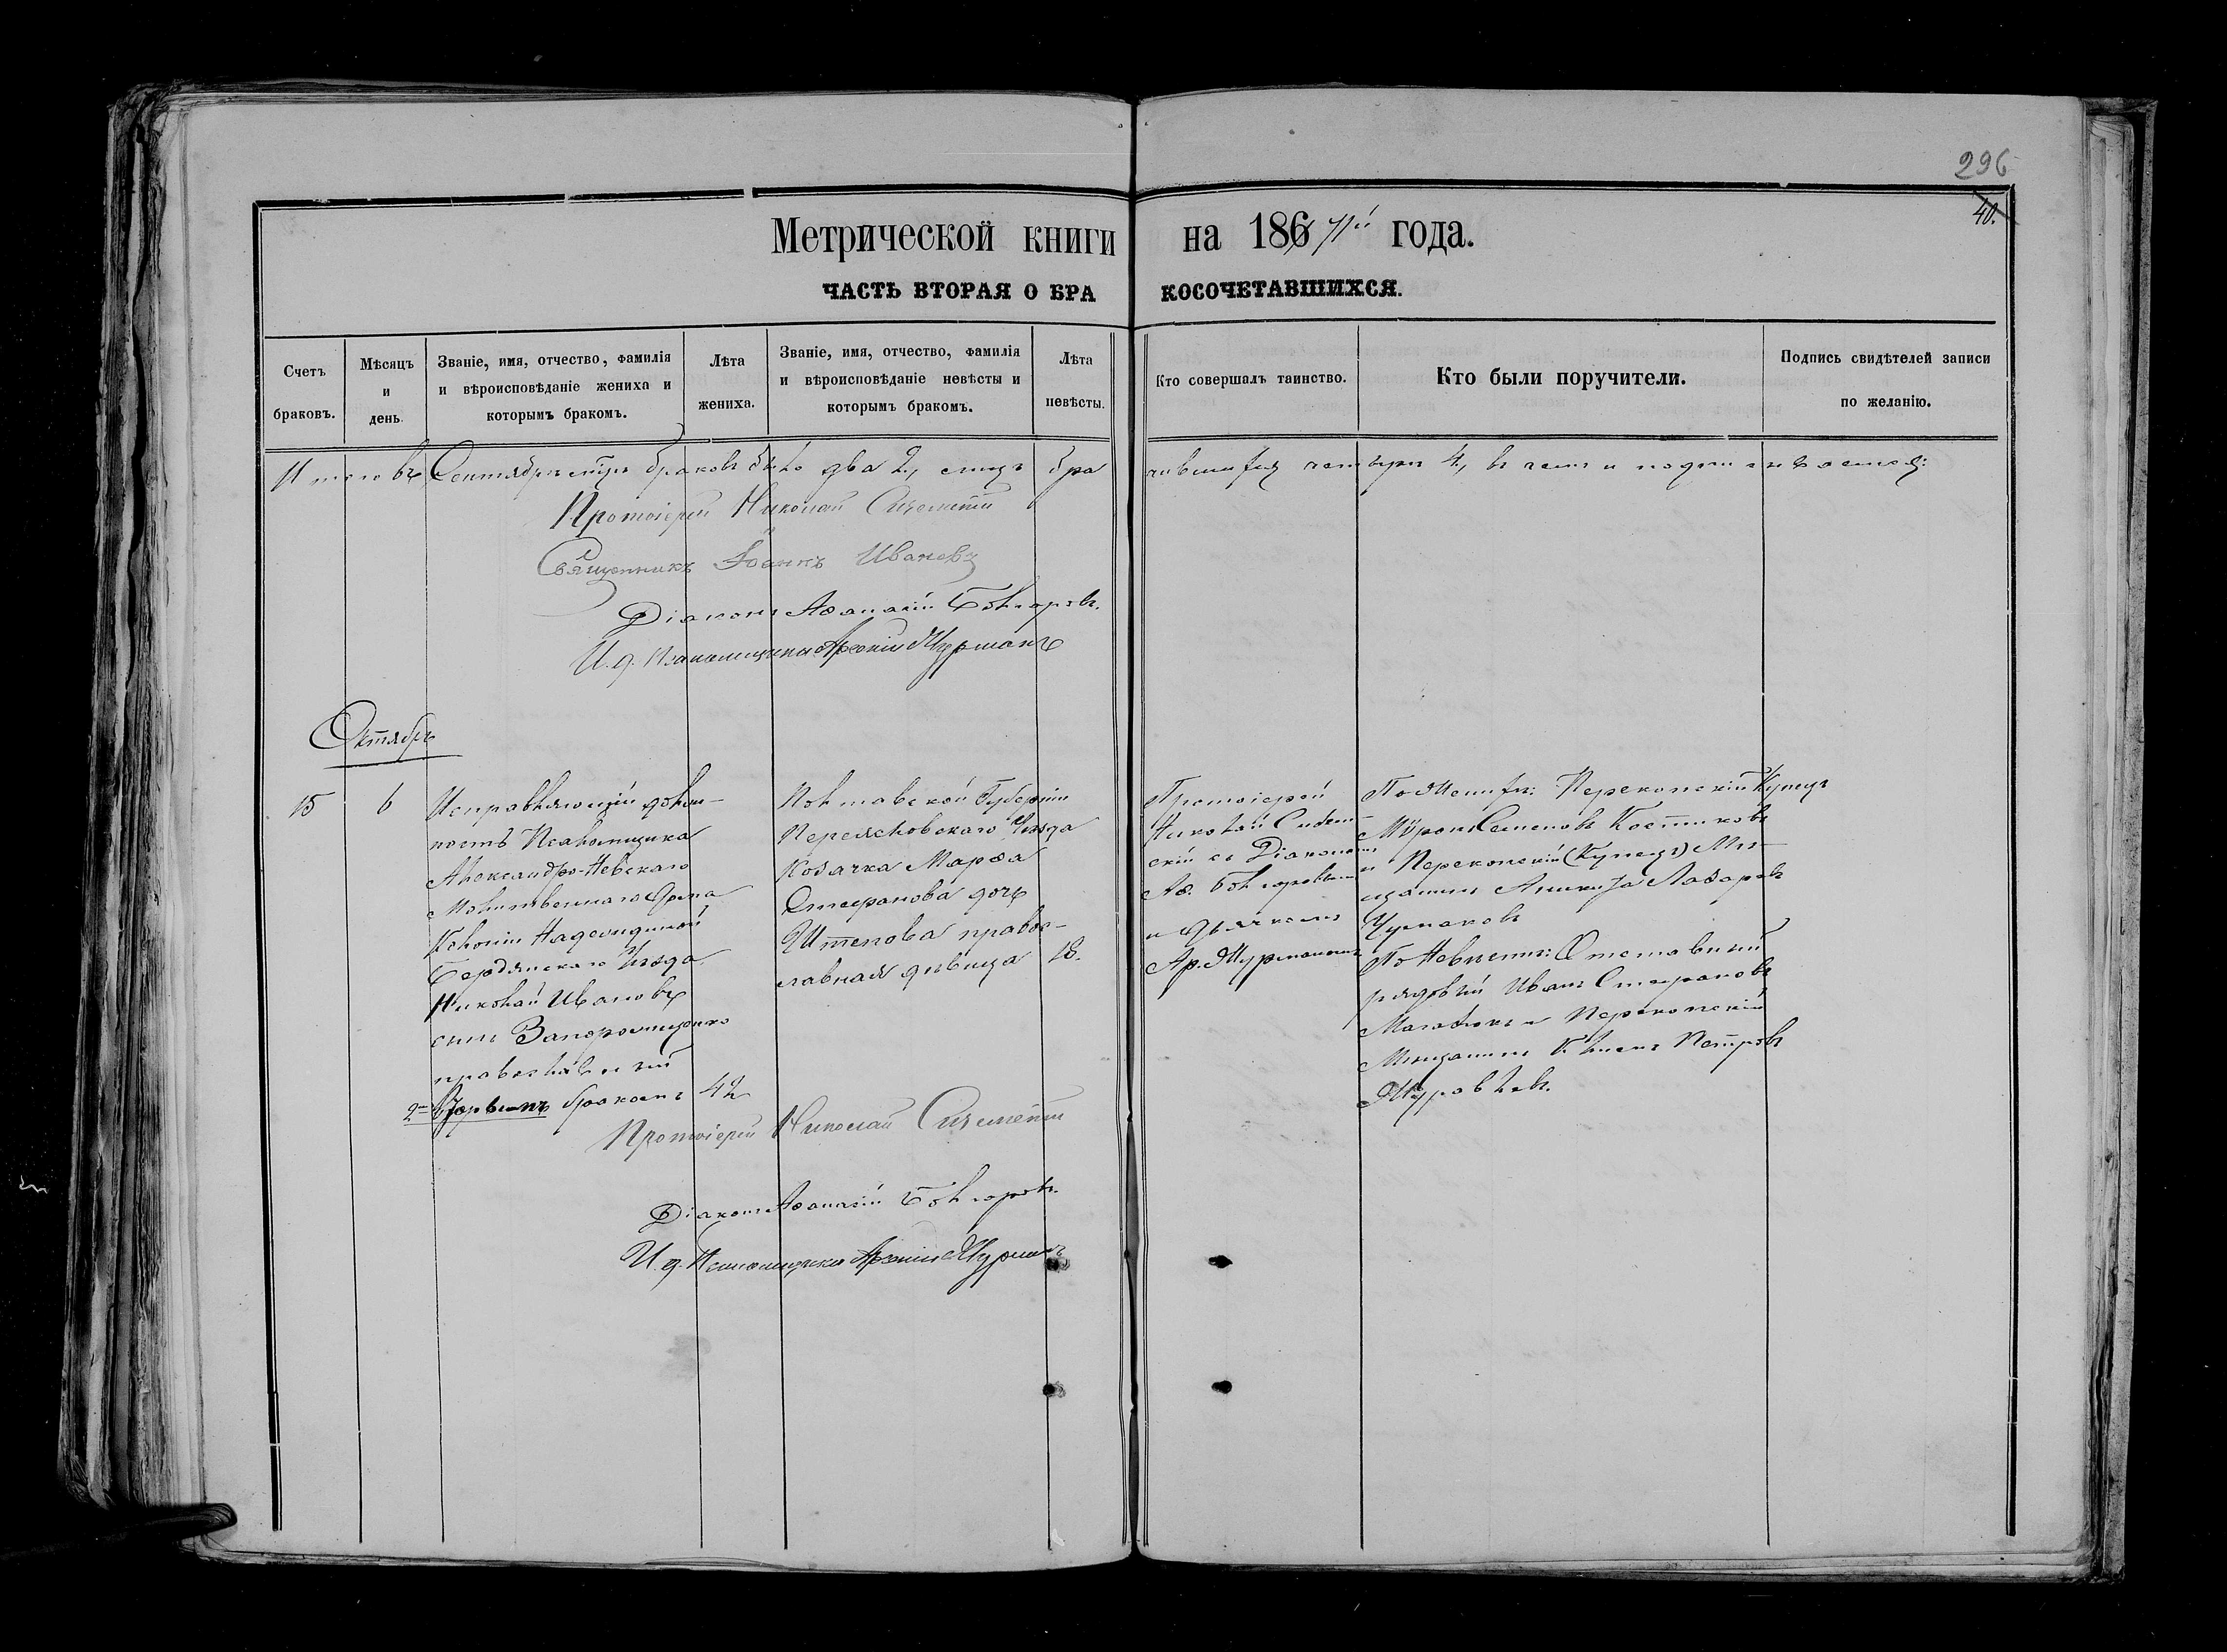 296
40.
Метрической книги на 186 71й года.
ЧАСТЬ ВТОРАЯ О БРАКОСОЧЕТАВШИХСЯ.
Счетъ браковъ.
Мѣсяцъ и день.
Званіе, имя, отчество, фамилія и вѣроисповѣданіе жениха и которымъ бракомъ.
Лѣта жениха.
Званіе, имя, отчество, фамилія и вѣроисповѣданіе невѣсты и которымъ бракомъ.
Лѣта невѣсты.
Кто совершалъ таинство.
Кто были поручители.
Подпись свидѣтелей записи по желанію.
Итого въ Сентябрѣ мцѣ браковъ было два 2, лицъ бра чившихся четыри 4, въ чемъ и подпи
Протоіерей Николай
Священникъ Іоаннъ Ивановъ
Діаконъ Аѳанасій Болгаровъ.
И. д. Псаломщика Арсеній Журманъ
Октябрь
15
6
Исправляющій долж-
ность Псаломщика
Александро-Невскаго
Молитвеннаго Дома
Колоніи Надеждиной
Бердянскаго Уѣзда
Николай Ивановъ
сынъ Запорожченко
православный
2мъ Вторымъ бракомъ
42
Полтавской Губерніи
Переясловскаго Уѣзда
Козачка Марѳа
Стефанова дочь
Штепова правос-
лавная дѣвица
18.
Протоіерей
Николай
скій съ Діакономъ
Аѳ. Болгаровымъ
и Дьячкомъ
Ар. Журманомъ
По Женихѣ: Перекопскій Купецъ
Мѵронъ Семеновъ Костиковъ
и Перекопскій (Купецъ) Мѣ-
щанинъ Аникита Лазаревъ
Чумаковъ
По Невѣстѣ: Отставный
рядовый Иванъ Стефановъ
и Перекопскій
Мѣщанинъ Климъ Петровъ
Журавлевъ.
Протоіерей Николай
Діаконъ Аѳанасій Болгаровъ.
И. д. Псаломщика Арсеній Журманъ